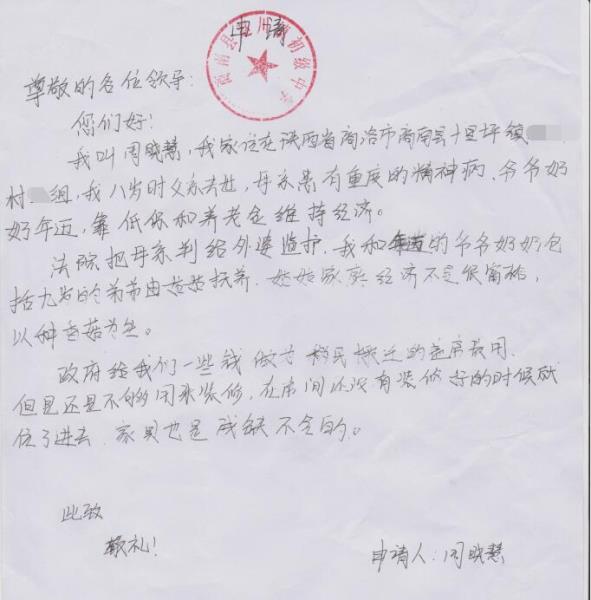 申请
商南县 初级中学
尊敬的各位领导:
您们好!
我叫周晓慧,我家住在陕西省商洛市商南县十里坪镇
村 组,我八岁时父亲去世,母亲患有重度的精神病、爷爷奶
奶年迈,靠低保和养老金维持经济。
法院把母亲判给外婆监护,我和年迈的爷爷奶奶包
括九岁的弟弟由姑姑抚养.姑姑家庭经济不是很富裕,
以种香菇为生。
政府给我们一些钱做为移民搬迁的 费用.
但是还是不够用来装修,在房间还没有装修好的时候就
住了进去.家具也是残缺不全的。
此致
敬礼!
申请人:周晓慧